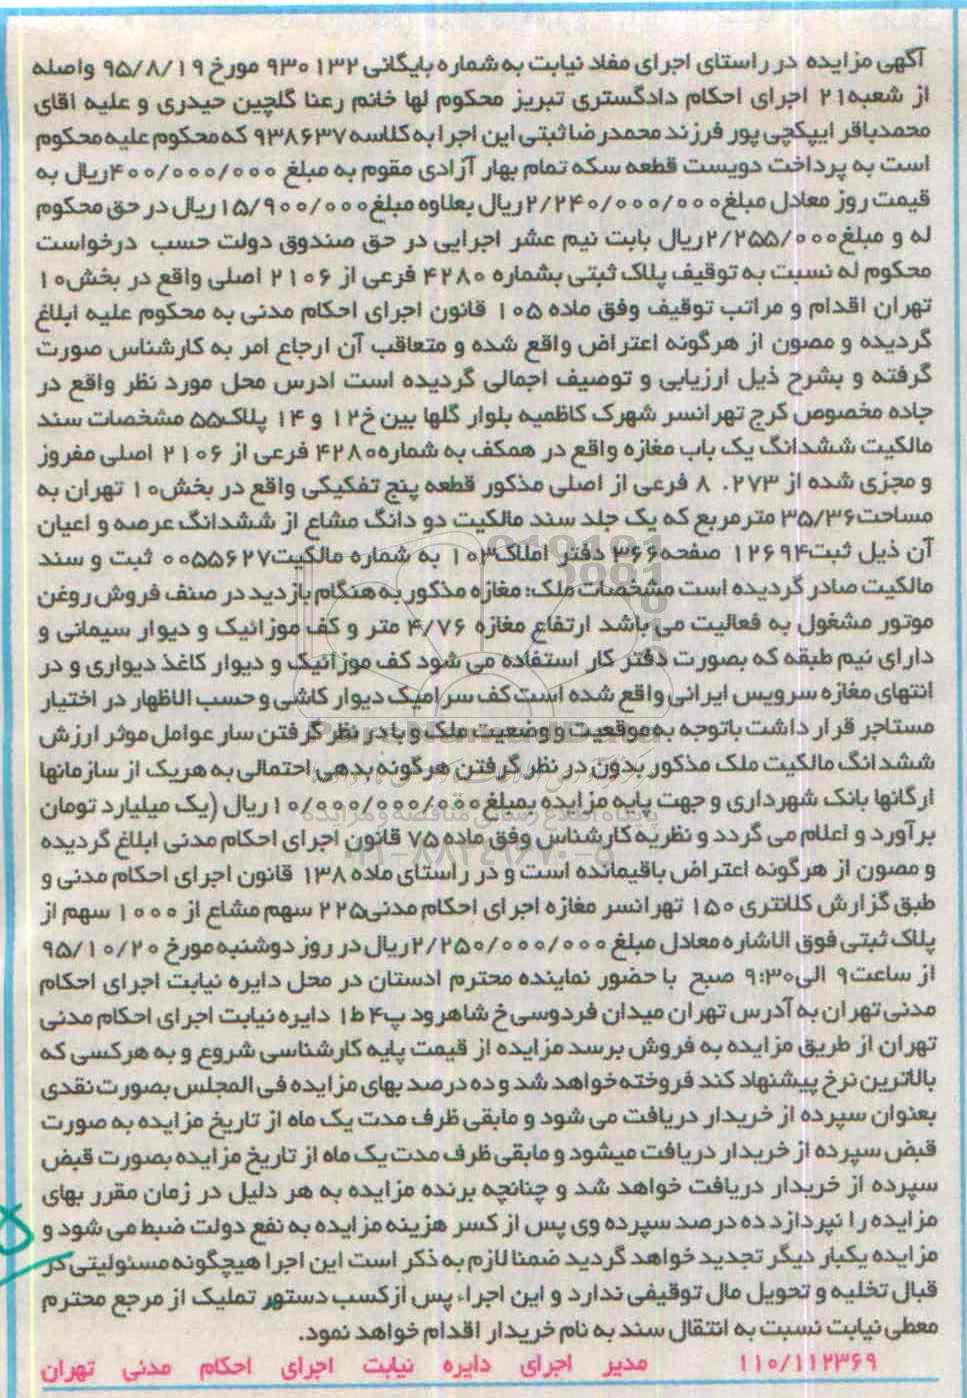 آگهی مزایده در راستای اجرای مفاد نیابت به شماره بایگانی ۹۳۰۱۳۲ مورخ ۹۵/۸/۱۹ واصله
از شعبه۲۱ اجرای احکام دادگستری تبریز محکوم لها خانم رعنا گلچین حیدری و علیه اقای
محمدباقر ایپکچی پور فرزند محمدرضا ثبتی این اجرا به کلاسه ۹۳۸۶۳۷ که محکوم علیه محکوم
است به پرداخت دویست قطعه سکه تمام بهار آزادی مقوم به مبلغ ۴۰۰/۰۰۰/۰۰۰ریال به
قیمت روز معادل مبلغ۲/۲۴۰/۰۰۰/۰۰۰ریال بعلاوه مبلغ۱۵/۹۰۰/۰۰۰ریال در حق محکوم
له و مبلغ۲/۲۵۵/۰۰۰ریال بابت نیم عشر اجرایی در حق صندوق دولت حسب درخواست
محکوم له نسبت به توقیف پلاک ثبتی بشماره ۴۲۸۰ فرعی از ۲۱۰۶ اصلی واقع در بخش۱۰
تهران اقدام و مراتب توقیف وفق ماده ۱۰۵ قانون اجرای احکام مدنی به محکوم علیه ابلاغ
گردیده و مصون از هرگونه اعتراض واقع شده و متعاقب آن ارجاع امر به کارشناس صورت
گرفته و بشرح ذیل ارزیابی و توصیف اجمالی گردیده است ادرس محل مورد نظر واقع در
جاده مخصوص کرج تهرانسر شهرک کاظمیه بلوار گلها بین خ۱۲ و ۱۴ پلاک۵۵ مشخصات سند
مالکیت ششدانگ یک باب مغازه واقع در همکف به شماره۴۲۸۰ فرعی از ۲۱۰۶ اصلی مفروز
و مجزی شده از ۲۷۳. ۸ فرعی از اصلی مذکور قطعه پنج تفکیکی واقع در بخش۱۰ تهران به
مساحت۳۵/۳۶ مترمربع که یک جلد سند مالکیت دو دانگ مشاع از ششدانگ عرصه و اعیان
آن ذیل ثبت۱۲۶۹۴ صفحه۳۶۶ دفتر املاک۱۰۳ به شماره مالکیت۰۰۵۵۶۲۷ ثبت و سند
مالکیت صادر گردیده است مشخصات ملک: مغازه مذکور به هنگام بازدید در صنف فروش روغن
موتور مشغول به فعالیت می باشد ارتفاع مغازه ۴/۷۶ متر و کف موزائیک و دیوار سیمانی و
دارای نیم طبقه که بصورت دفتر کار استفاده می شود کف موزائیک و دیوار کاغذ دیواری و در
انتهای مغازه سرویس ایرانی واقع شده است کف سرامیک دیوار کاشی و حسب الاظهار در اختیار
مستاجر قرار داشت باتوجه به موقعیت و وضعیت ملک و با در نظر گرفتن سار عوامل موثر ارزش
ششدانگ مالکیت ملک مذکور بدون در نظر گرفتن هرگونه بدهی احتمالی به هریک از سازمانها
ارگانها بانک شهرداری و جهت پایه مزایده بمبلغ۱۰/۰۰۰/۰۰۰/۰۰۰ریال (یک میلیارد تومان
برآورد و اعلام می گردد و نظریه کارشناس وفق ماده ۷۵ قانون اجرای احکام مدنی ابلاغ گردیده
و مصون از هرگونه اعتراض باقیمانده است و در راستای ماده ۱۳۸ قانون اجرای احکام مدنی و
طبق گزارش کلانتری ۱۵۰ تهرانسر مغازه اجرای احکام مدنی۲۲۵ سهم مشاع از ۱۰۰۰ سهم از
پلاک ثبتی فوق الاشاره معادل مبلغ ۲/۲۵۰/۰۰۰/۰۰۰ریال در روز دوشنبه مورخ ۹۵/۱۰/۲۰
از ساعت۹ الی۹:۳۰ صبح با حضور نماینده محترم ادستان در محل دایره نیابت اجرای احکام
مدنی تهران به آدرس تهران میدان فردوسی خ شاهرود پ۴ ط۱ دایره نیابت اجرای احکام مدنی
تهران از طریق مزایده به فروش برسد مزایده از قیمت پایه کارشناسی شروع و به هرکسی که
بالاترین نرخ پیشنهاد کند فروخته خواهد شد و ده درصد بهای مزایده فی المجلس بصورت نقدی
بعنوان سپرده از خریدار دریافت می شود و مابقی ظرف مدت یک ماه از تاریخ مزایده به صورت
قبض سپرده از خریدار دریافت میشود و مابقی ظرف مدت یک ماه از تاریخ مزایده بصورت قبض
سپرده از خریدار دریافت خواهد شد و چنانچه برنده مزایده به هر دلیل در زمان مقرر بهای
مزایده را نپردازد ده درصد سپرده وی پس از کسر هزینه مزایده به نفع دولت ضبط می شود و
مزایده یکبار دیگر تجدید خواهد گردید ضمنا لازم به ذکر است این اجرا هیچگونه مسئولیتی در
قبال تخلیه و تحویل مال توقیفی ندارد و این اجراء پس از کسب دستور تملیک از مرجع محترم
معطی نیابت نسبت به انتقال سند به نام خریدار اقدام خواهد نمود.
۱۱۰/۱۱۲۳۶۹ مدیر اجرای دایره نیابت اجرای احکام مدنی تهران